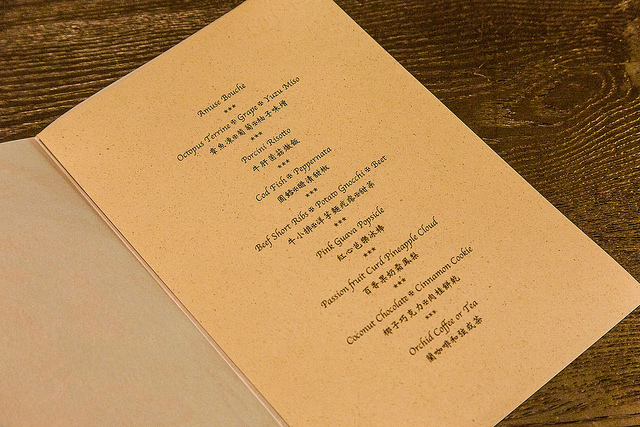 Amuse Bouche
***
Octopus Terrine * Grape * Yuzu Miso
章魚凍*葡萄*柚子味噌
***
Porcini Risotto
牛肝菌菇燉飯
***
Cod Fish * Peppernata
圓鱈*醃漬甜椒
***
Beef Short Ribs * Potato Gnocchi * Beet
牛小排*洋芋麵疙瘩*甜菜
***
Pink Guava Popsicle
紅心芭樂冰棒
***
Passion fruit Curd Pineapple Cloud
百香果奶霜鳳梨
***
Coconut Chocolate * Cinnamon Cookie
椰子巧克力*肉桂餅乾
***
Orchid Coffee or Tea
蘭咖啡和強或茶